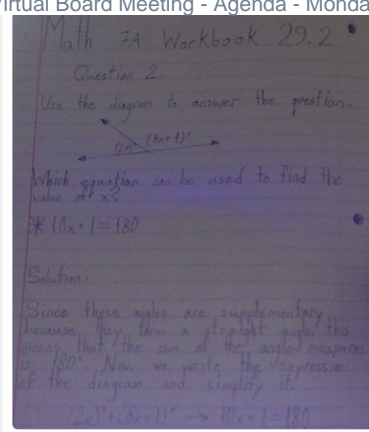 Virtual Board Meeting - Agenda - Monda
Math 7A Workbook 29.2
Question 2.
Use the diagram to answer the question.
(2x)° (8x+1)°
Which equation can be used to find the
value of x?
10x+1=180
Solution.
Since these angles are supplementary
because they form a straight angle, this
means that the sum of the angle measures
is 180°. Now we write the expression
of the diagram and simplify it.
(2x)°+(8x+1)° → 10x+1=180